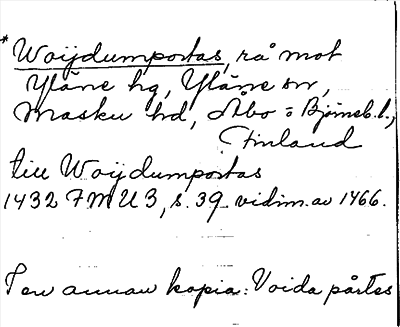 * Woijdumportas, rå mot
Yläne hg, Yläne sn,
Masku hd, Åbo o Björneb. l.,
Finland
till Woijdumportas
1432 FMU 3, s. 39 vidim. av 1466.
I en annan kopia: Voida pårtes